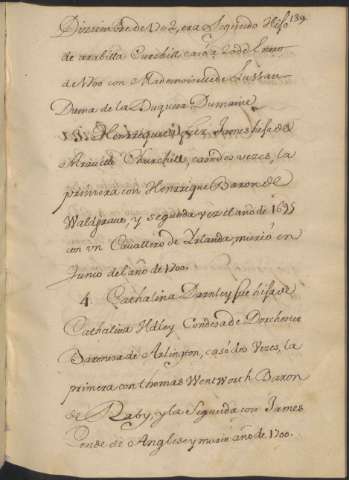 139
Diziembre de 1702, era Segundo Hijo
de Arabilla Curchill casó a 20 de Enero
de 1700 con Mademoiselle de Lussan
Dama de la Duquesa Dumaine,
3. Henriqueta fitz James hija de
Aravella Churchill, casó dos vezes, la
primera con Henrique Baron de
Waldgrave, y segunda vez el año de 1695
con vn Cavallero de Irlanda, murió en
Junio del año de 1700.
4. Cathalina Darnley fue hija de
Cathalina Hdley Condesa de Dorchester
Baronesa de Arlington, casó dos Vezes, la
primera con thomas Wentworth Baron
de Raby, y la Segunda con James
Conde de Anglesey murio año de 1700.